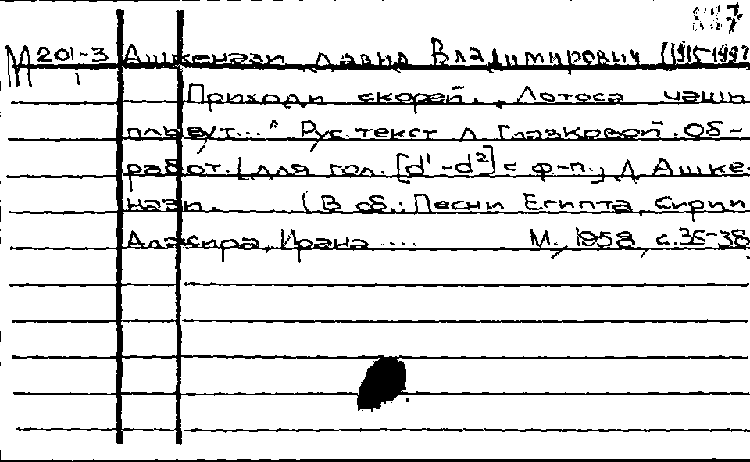 М 201-3 Ашкенази Давид Владимирович (1915-1997
1
Приходи скорей. „Лотоса чаши
плывут..." Рус. текст Л. Глазковой. Об-
работ. [для гол. [d¹-d²] с ф-п.] Д. Ашке-
нази. (В сб.: Песни Египта, Сирии
Алжира, Ирана .... М., 1958, с. 35-38